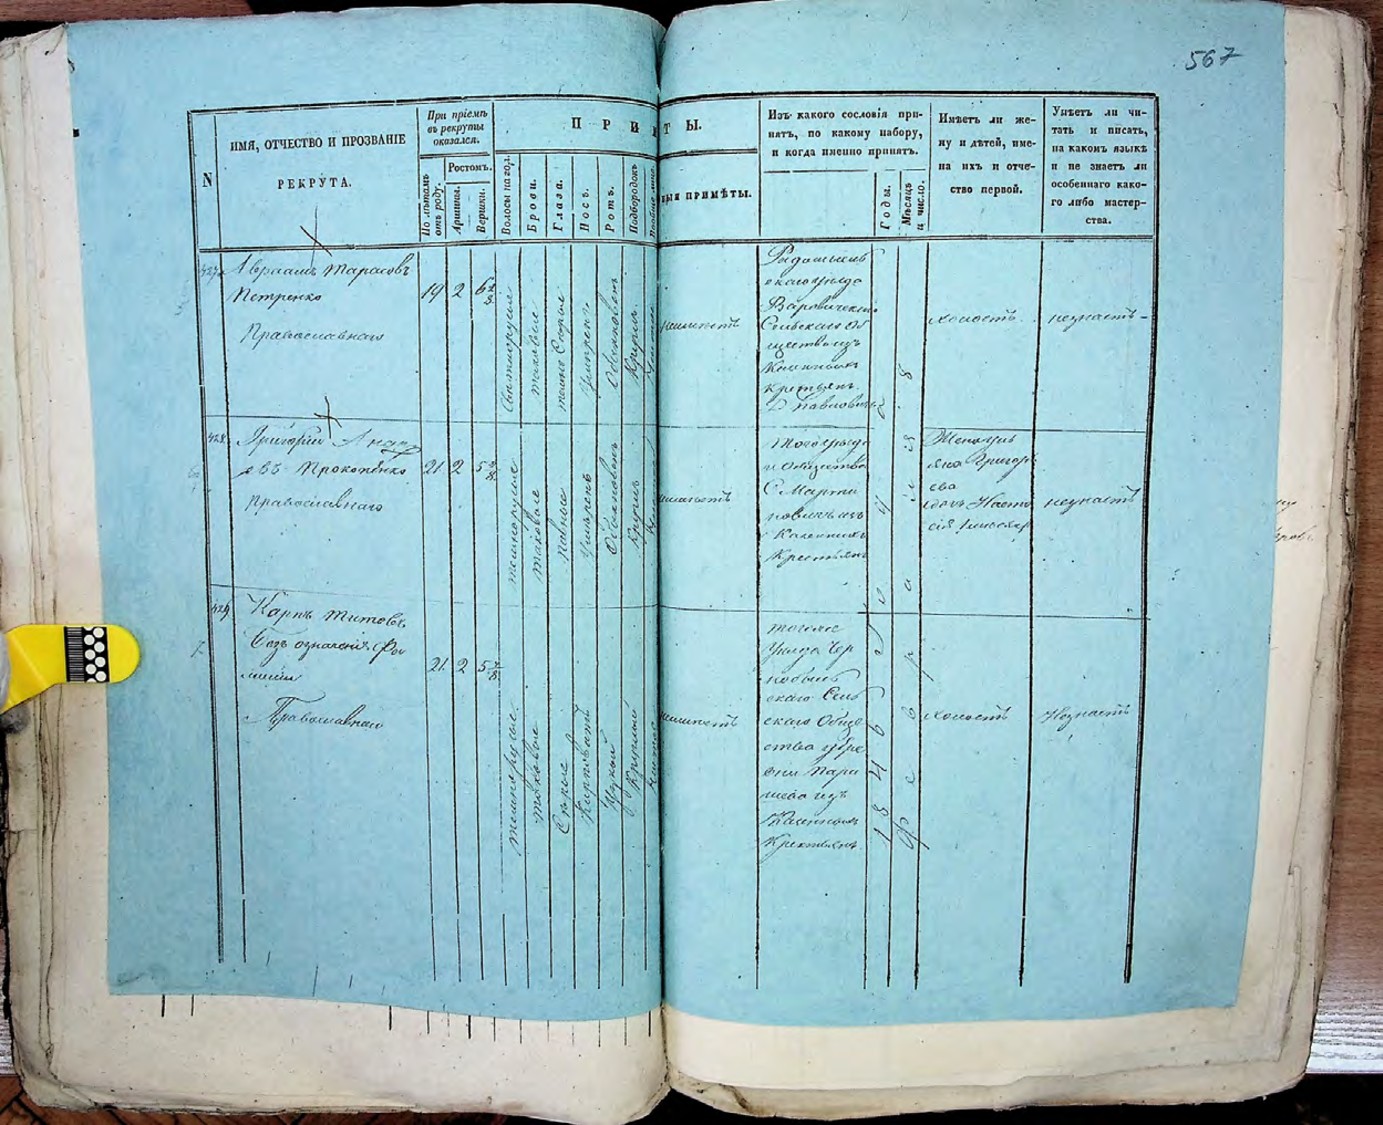 567
N
ИМЯ, ОТЧЕСТВО И ПРОЗВАНІЕ
РЕКРУТА.
При пріемѣ
въ рекруты
оказался.
По лѣтамъ
отъ роду.
Ростомъ.
Аршины.
Вершки.
ПРИ
Волосы на гол.
Брови.
Глаза.
Носъ.
Ротъ.
Подбородокъ
ТЫ.
ЫЯ ПРИМѢТЫ.
Изъ какого сословія при-
нятъ, по какому набору,
и когда именно принятъ.
Годы.
Мѣсяцъ
и число.
Имѣетъ ли же-
ну и дѣтей, име-
на ихъ и отче-
ство первой.
Умѣетъ ли чи-
тать и писать,
на какомъ языкѣ
и не знаетъ ли
особеннаго како-
го либо мастер-
ства.
427
Авраамъ Тарасовъ
Петренко
Православнаго
19 2 6
Свѣтлорусые
таковые
темно Сѣрые
Умѣренъ
Обыкновенъ
Кругла
неимѣетъ
Радомысль
скаго уѣзда
Варовическ
Сельскаго Об
щества изъ
Казенныхъ
Крестьянъ
холостъ
неумѣетъ
428
Григорій Андр
евъ Прокопенко
Православнаго
21 2 5
темнорусые
таковые
Умѣренъ
Обыкновенъ
Круглъ
неимѣетъ
Тогоуѣзда
и Общества
С Марти
новичъ изъ
Казенныхъ
Крестьянъ
Григорь
ева
дочь Наста
сія
неумѣетъ
429
Карпъ Титовъ
Безъ означенія Фа
миліи
Православнаго
21 2 5
темнорусые
таковые
Сѣрые
Узкій
Круглый
неимѣетъ
тогоже
уѣзда Чер
нобыль
скаго Сель
скаго Обще
ства дере
вни Пари
шева изъ
Казенныхъ
Крестьянъ
холостъ
Неумѣетъ